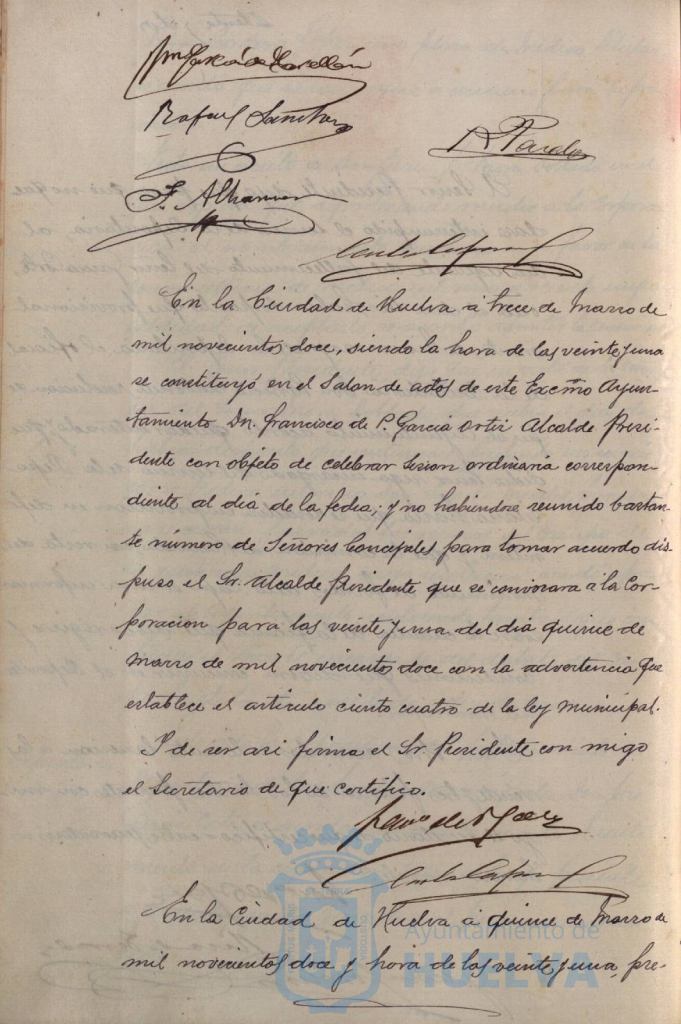 Rafael Sanchez
A Pardo
En la Ciudad de Huelva á trece de Marzo de
mil novecientos doce, siendo la hora de las veinte y una
se constituyó en el Salon de actos de este Excmo Ayun-
tamiento Dn. Francisco de P. Garcia Ortiz Alcalde Presi-
dente con objeto de celebrar sesion ordinaria correspon-
diente al dia de la fecha; y no habiendose reunido bastan-
te número de Señores Concejales para tomar acuerdo dis-
puso el Sr. Alcalde Presidente que se convocara á la Cor-
poracion para las veinte y una del dia quince de
Marzo de mil novecientos doce con la advertencia que
establece el articulo ciento cuatro de la ley municipal.
Y de ser asi firma el Sr. Presidente con migo
el Secretario de que certifico.
En la Ciudad de Huelva á quince de Marzo de
Ayuntamiento de
mil novecientos doce y hora de las veinte y una, pre-
HUELVA